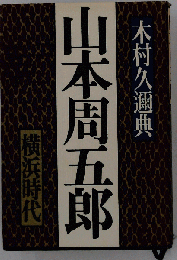 木村久邇典
山本周五郎
横浜時代